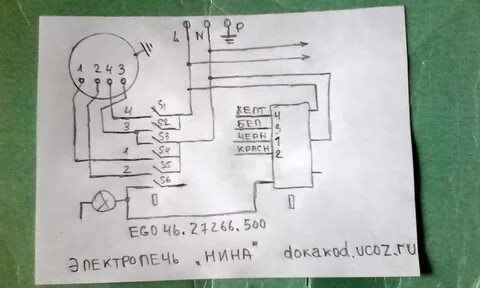 L N P
1 2 4 3
4 S1
S2
3 S3
1 S4
2 S5
S6
ЖЕЛТ 4
БЕЛ 3
ЧЕРН 1
КРАСН 2
EGO 46.27266.500
ЭЛЕКТРОПЕЧЬ „НИНА" dokakod.ucoz.ru